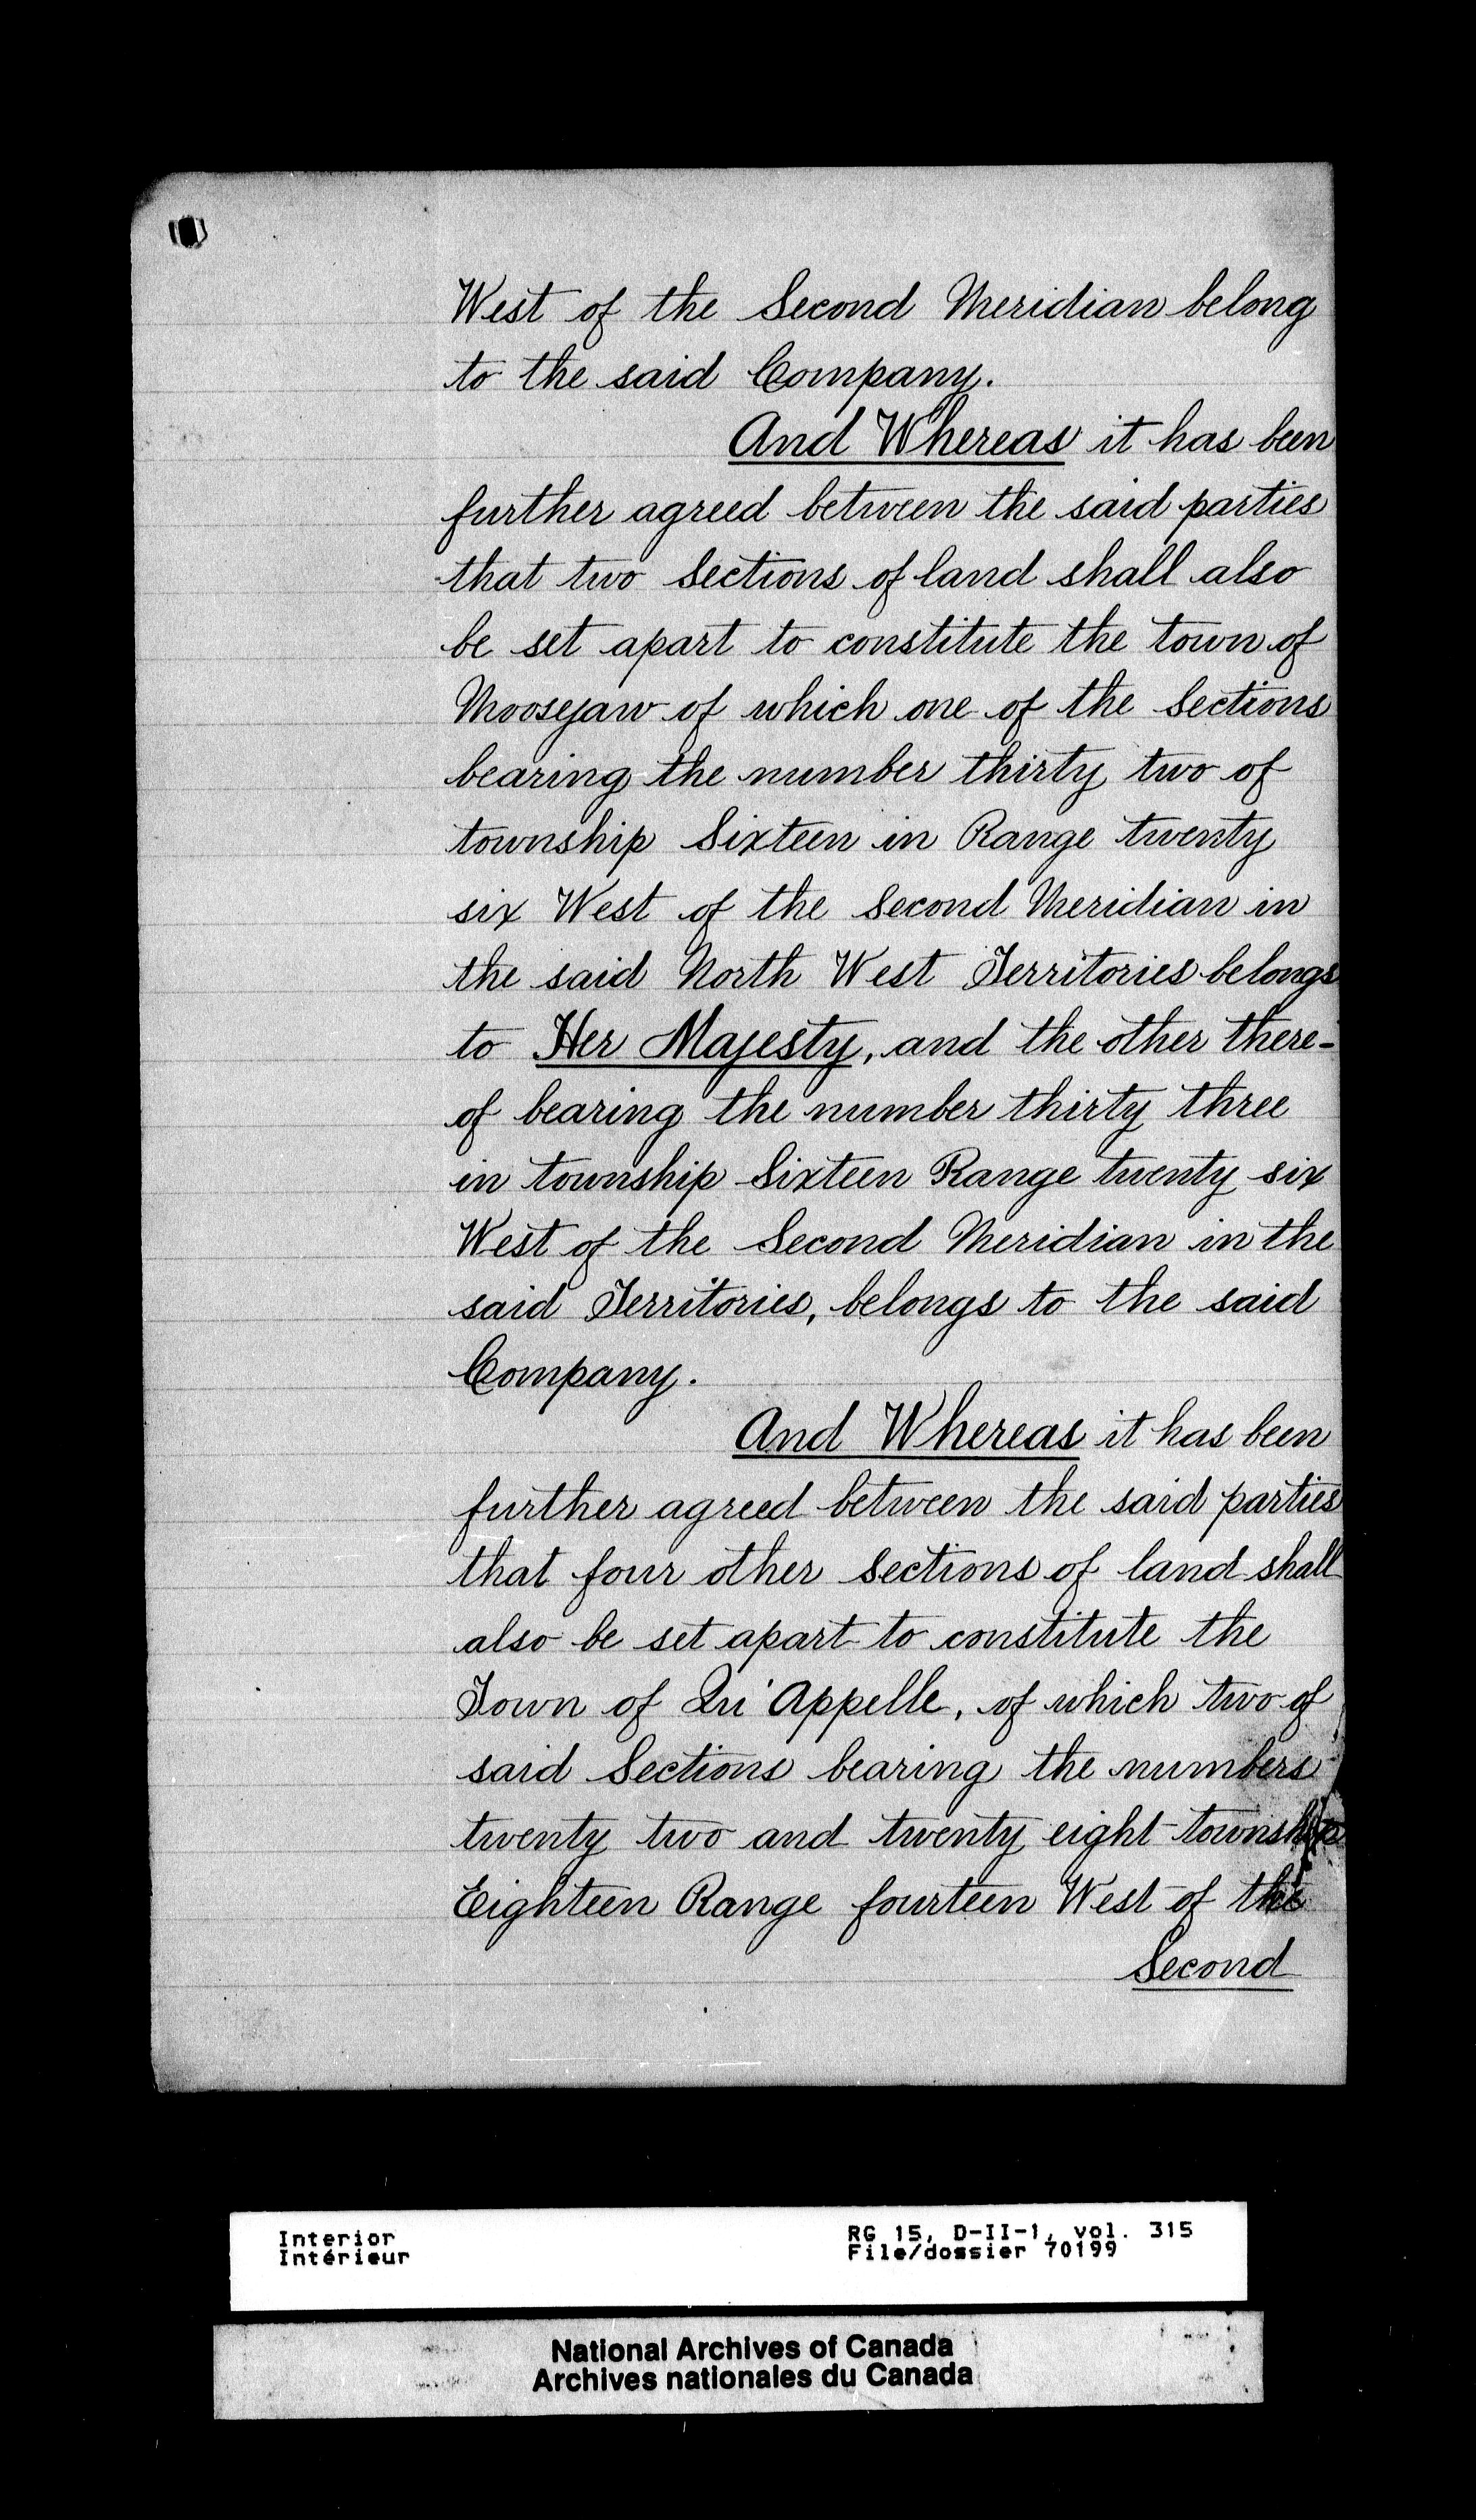 West of the Second Meridian belong
to the said Company.
And Whereas it has been
further agreed between the said parties
that two Sections of land shall also
be set apart to constitute the town of
Moosejaw of which one of the Sections
bearing the number thirty two of
township Sixteen in Range twenty
six West of the Second Meridian in
the said North West Territories belongs
to Her Majesty, and the other there-
of bearing the number thirty three
in township Sixteen Range twenty six
West of the Second Meridian in the
said Territories, belongs to the said
Company.
And Whereas it has been
further agreed between the said parties
that four other Sections of land shall
also be set apart to constitute the
Town of Qu'Appelle, of which two of
said Sections bearing the numbers
twenty two and twenty eight township
Eighteen Range fourteen West of the
Second
Interior
Intérieur
RG 15, D-II-1, vol. 315
File/dossier 70199
National Archives of Canada
Archives nationales du Canada